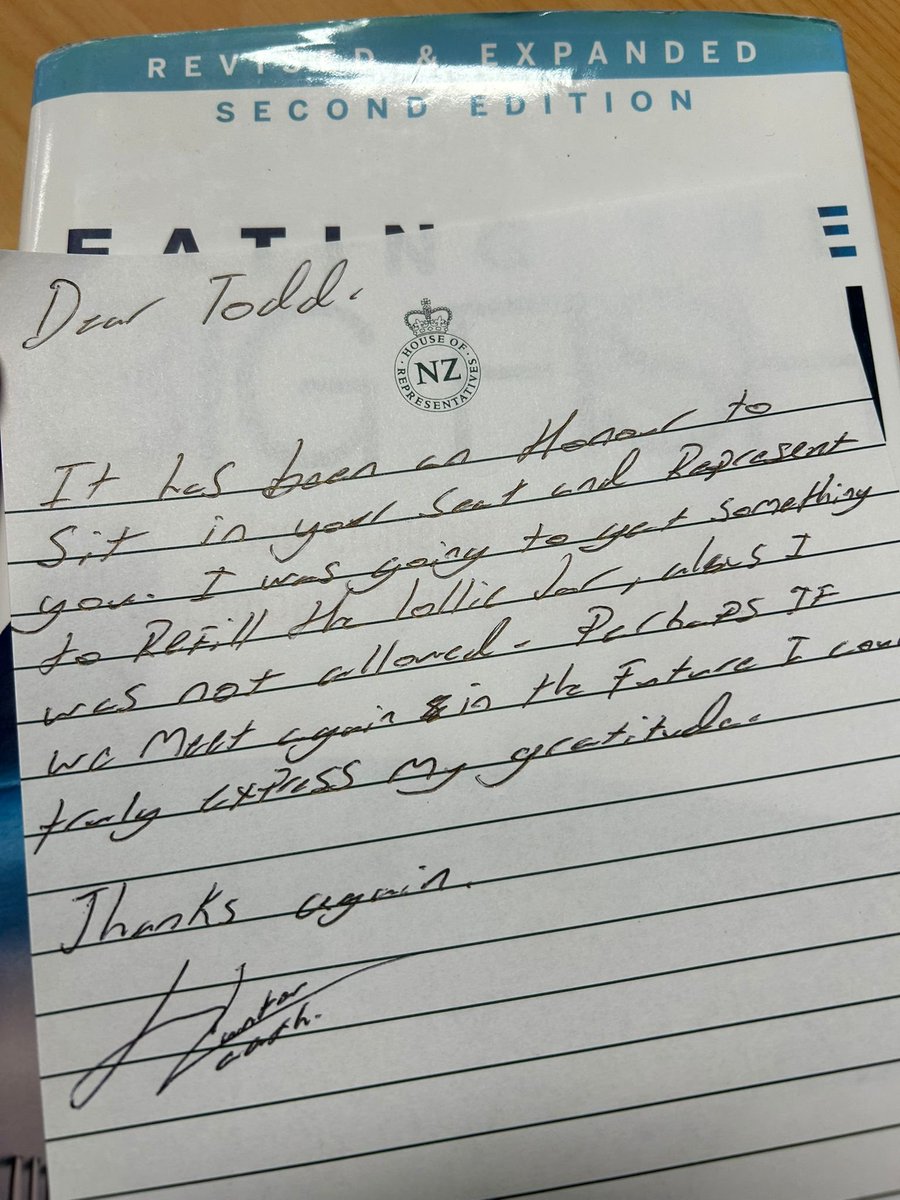 REVISED & EXPANDED
SECOND EDITION
EATING
Dear Todd.
HOUSE OF
NZ
REPRESENTATIVES
It has been an Honour to
Sit in your Seat and Represent
you. I was going to get something
to Refill the lollie Jar, alas I
was not allowed. Perhaps IF
we Meet again in the Future I cou
truly express my gratitude.
Thanks again.
Hunter